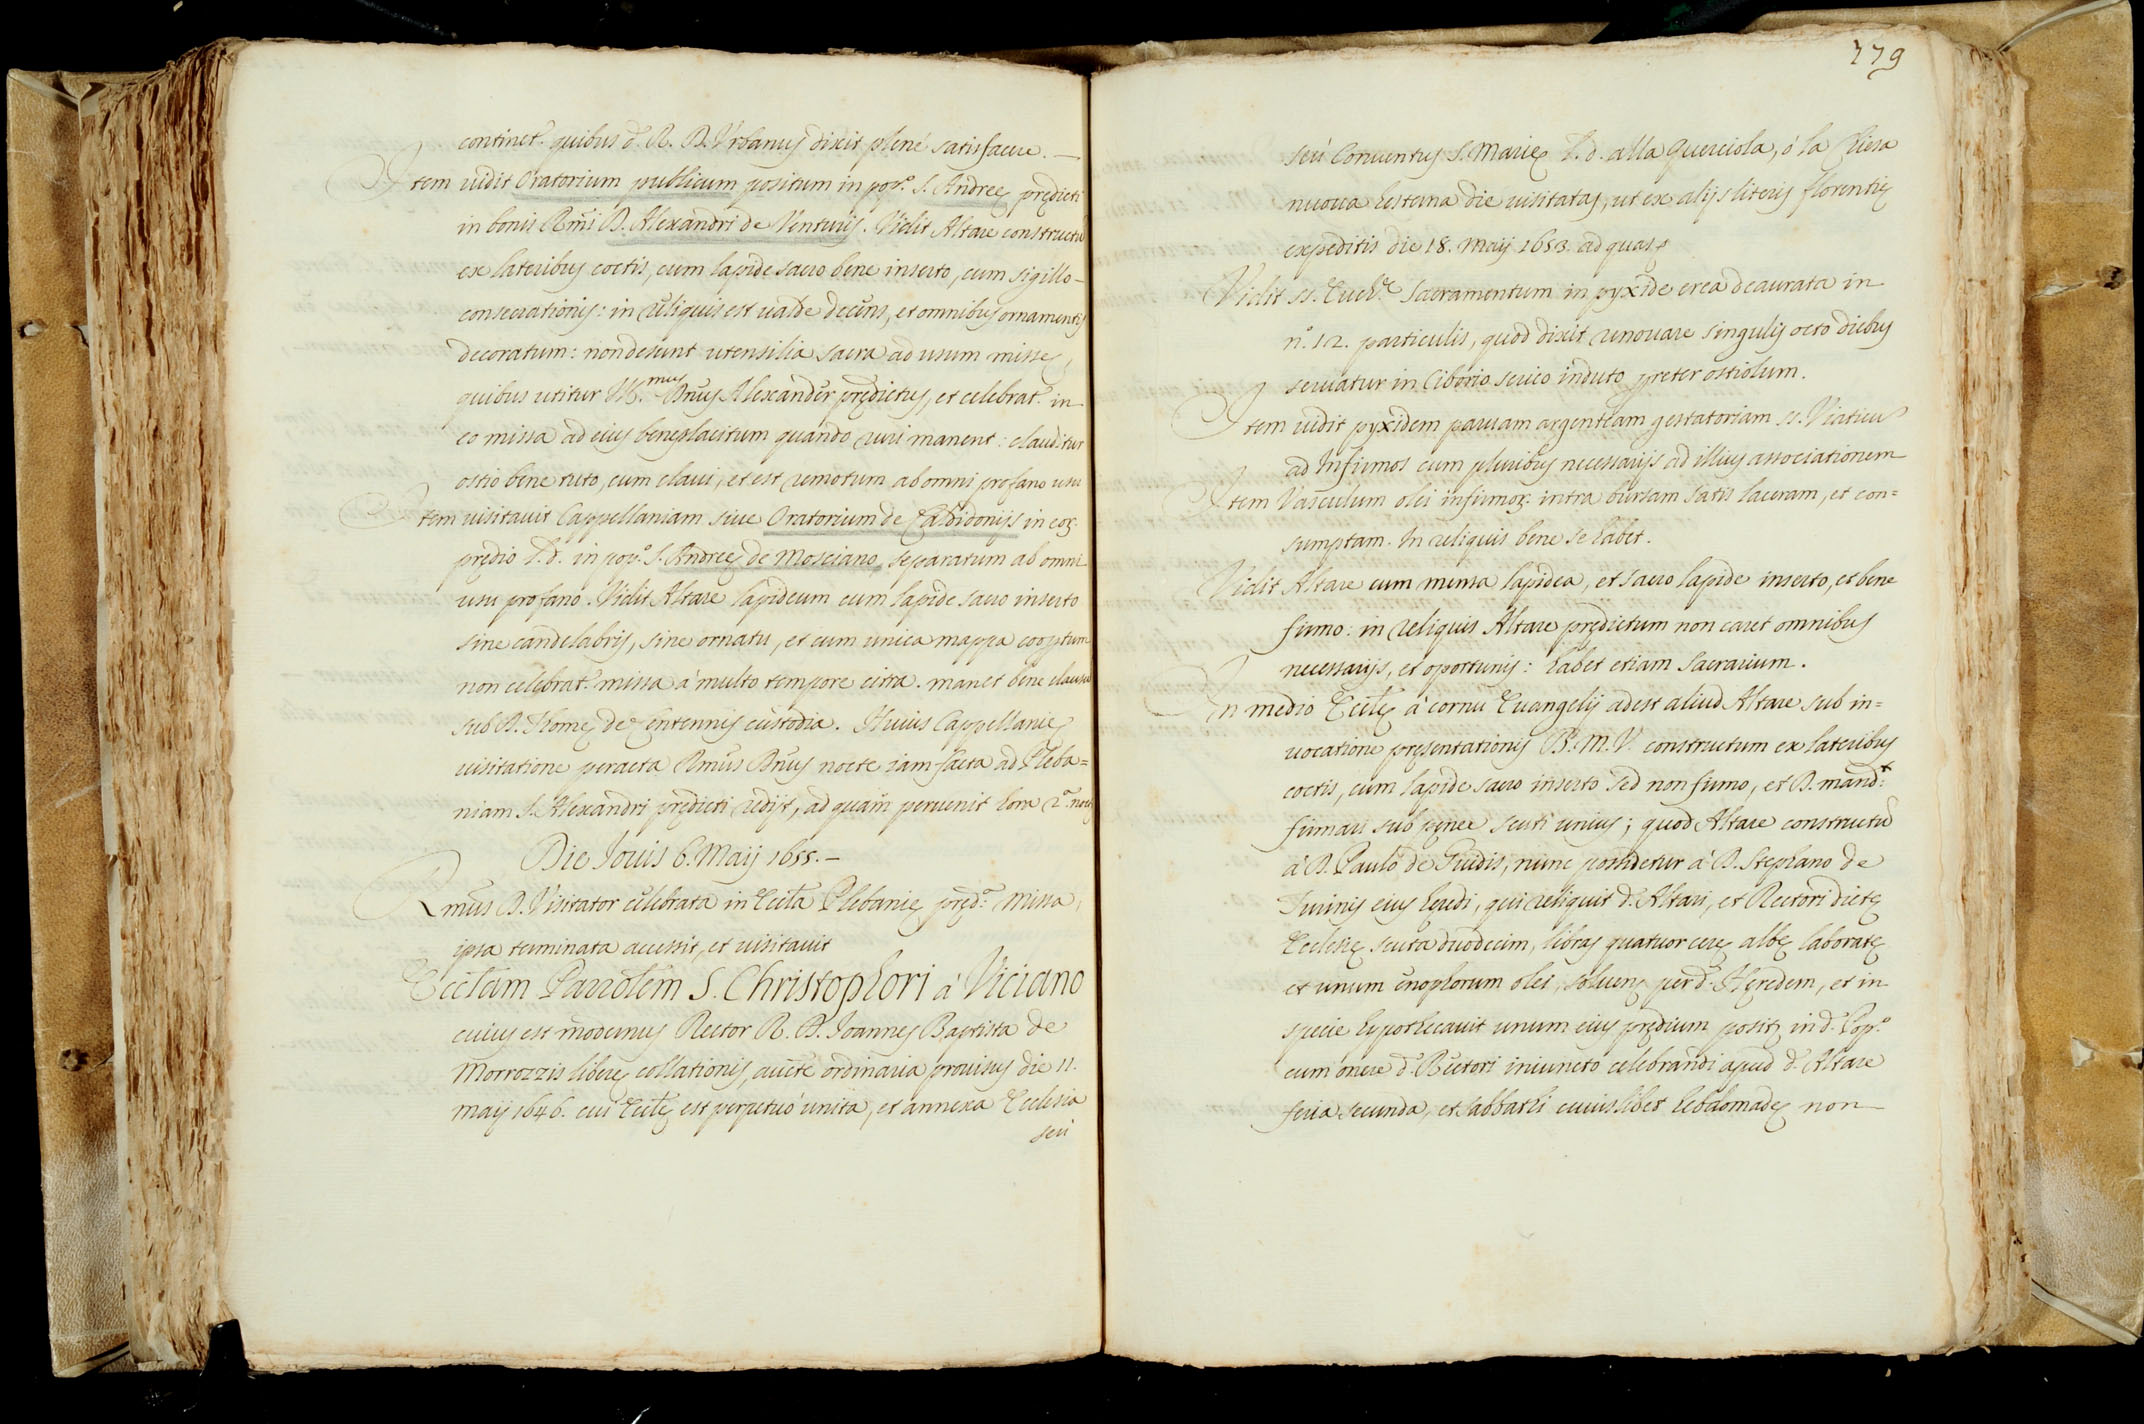 continet.r quibus d. R. D. Urbanus dixit plené satisfacere. —
Item vidit Oratorium publicum positum in pop.o S. Andreę prędicti
in bonis Rm̃i D. Alexandri de Venturis. Vidit Altare constructũ
ex lateribus coctis, cum lapide sacro bene inserto, cum sigillo
consecrationis: in reliquis est valde decens, et omnibus ornamentis
decoratum: non desunt utensilia sacra ad usum missę,
quibus utitur Ill.mus Dñus Alexander prędictus, et celebrat.r in
eo missa ad eius beneplacitum quando ruri manent: clauditur
ostio bene tuto, cum clavi, et est remotum ab omni profano usu
Item visitavit Cappellaniam sive Oratorium de in eoꝝ
prędio s.d. in pop.o S. Andreę de Mosciano separatum ab omni
usu profano. Vidit Altare lapideum cum lapide sacro inserto
sine candelabris, sine ornatu, et cum unica mappa coopertum
non celebrat.r missa á multo tempore citra. manet bene clausa
sub D. Thomę de Centennis custodia. Huius Cappellanię
visitatione peracta Rmus Dñus nocte iam facta ad Pleba=
niam S. Alexandri prędicti redijt, ad quam pervenit hora 2.a noctis
Die Iovis 6. Maij 1655. —
Rmus D. Visitator celebrata in Eccl̃a Plebanię pręd.a Missa,
ipsa terminata accessit, et visitavit
Eccl̃am Parrol̃em S. Christophori á Viciano
cuius est modernus Rector R. D. Ioannes Baptista de
Morrozzis liberę collationis, aucte ordinaria provisus die 11.
Maij 1646. cui Eccl̃ę est perpetuó unita, et annexa Ecclesia
seu
779
seú Conventus S. Marię s.d. alla Querciola, ó la Chiesa
nuova hesterna die visitatas, ut ex alijs literis florentię
expeditis die 18. Maij 1653. ad quas
Vidit SS. Euch.e Sacramentum in pyxide erea deaurata in
n.o 12. particulis, quod dixit renovare singulis octo diebus
servatur in Ciborio serico induto pręter ostiolum.
Item vidit pyxidem parvam argenteam gestatoriam SS. Viaticũ
ad Infirmos cum pluribus necessarijs ad illius associationem
Item Vasculum olei infirmoꝝ intra bursam satis laceram, et con=
sumptam. In reliquis bene se habet.
Vidit Altare cum mensa lapidea, et sacro lapide inserto, et bene
firmo: in reliquis Altare prędictum non caret omnibus
necessarijs, et oportunis: habet etiam Sacrarium.
In medio Eccl̃ę á cornu Evangelij adest aliud Altare sub in=
vocatione pręsentationis B. M. V. constructum ex lateribus
coctis, cum lapide sacro inserto sed non firmo, et D. mand.t
firmari sub pęnę scuti unius; quod Altare constructũ
á D. Paulo de Giudis, nunc possidetur á D. Stephano de
Iuninis eius hęredi, qui reliquit d. Altari, et Rectori dictę
Ecclesię scuta duodecim, libras quatuor cerę albę laboratę
et unum enophorum olei, solven. per d. Hęredem, et in
specie hypothecavit unum eius prędium posit. in d. Pop.o
cum onere d. Rectori iniuncto celebrandi apud d. Altare
feria secunda, et sabbathi cuiuslibet hebdomadę non